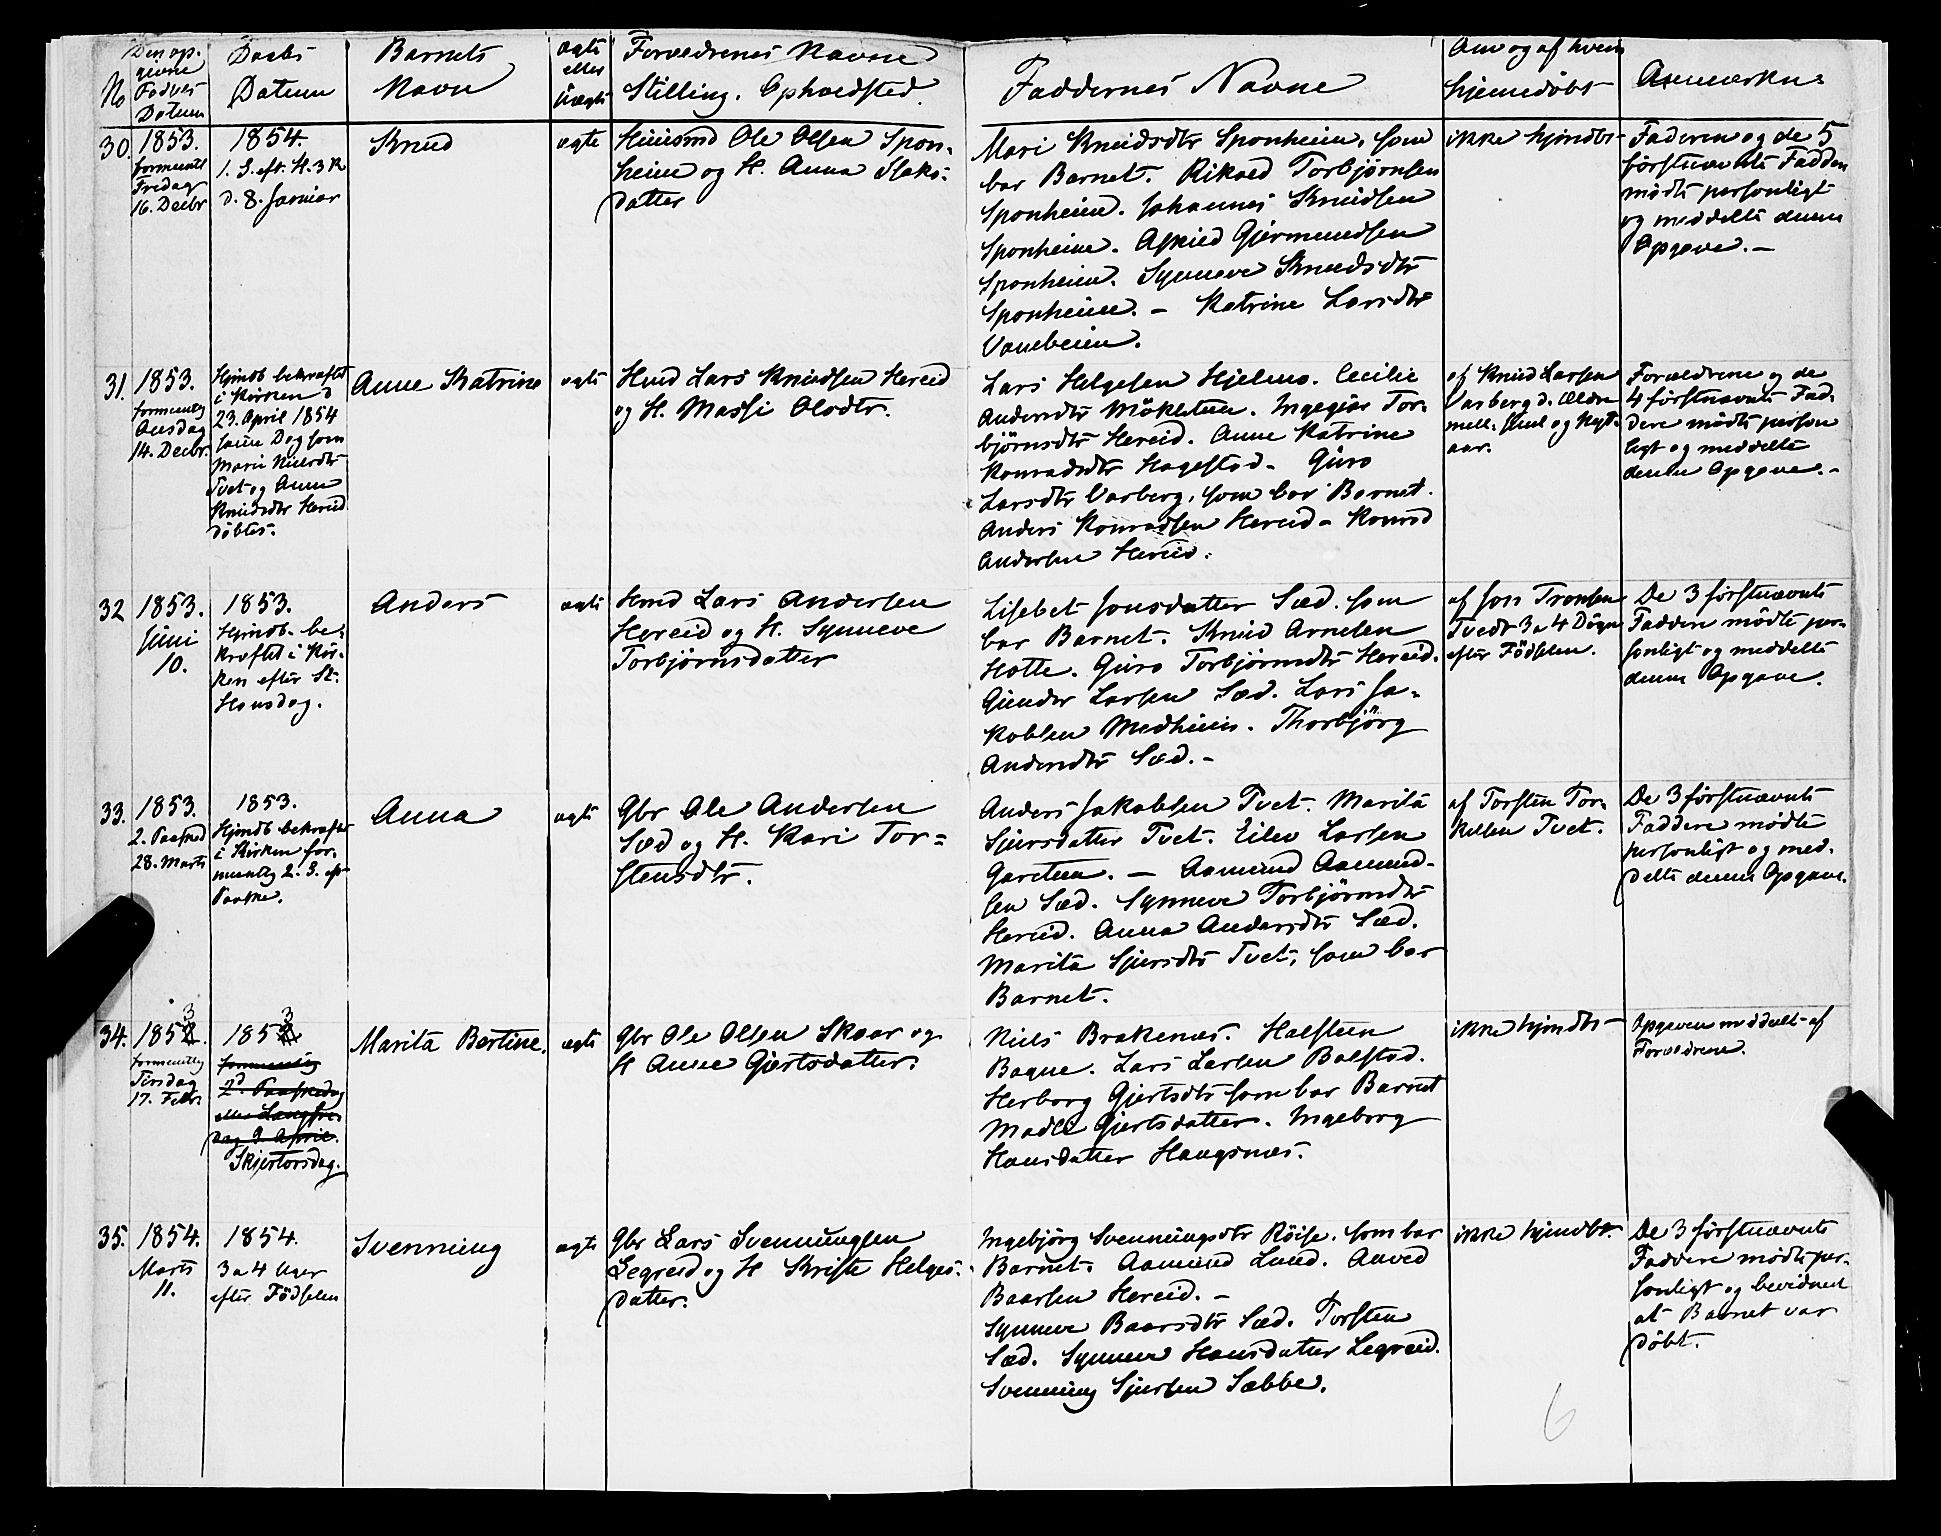 No
Den op-
givne
Fødsels
Datum
Daabs
Datum
Barnets
Navn
ægte
eller
uægte
Forældrenes Navne
Stilling. Opholdsted.
Faddernes Navne
Om og af hvem
hjemmedøbt
Anmærkn:
30.
1853.
formentl
Fredag
16. Decbr
1854.
1. S. eft. H. 3 K
d. 8. Januar
Knud
ægte
Huusmd Ole Olsen Spon-
heim og H. Anna Isaks-
datter
Mari Knudsdtr Sponheim, som
bar Barnet. Rikard Torbjørnsen
Sponheim. Johannes Knudsen
Sponheim. Asmund Gjermundsen
Sponheim. Synneve Knudsdtr
Sponheim. – Katrine Larsdtr
Vambeim.
ikke hjmdbt
Faderen og de 5
førstnævnte Faddere
mødte personligt
og meddelte denne
Opgave. –
31.
1853.
formentlig
Onsdag
14. Decbr.
Hjmdb bekræftet
i Kirken d
23. April 1854
samme Dag som
Mari Nielsdtr
Tvet og Anna
Knudsdtr Hereid
døbtes.
Anne Katrine
ægte
Hmd Lars Knudsen Hereid
og H. Massi Olsdtr.
Lars Helgesen Hjelmo. Cecilie
Andersdtr Møkletun. Ingegjær Tor-
bjørnsdtr Hereid. Anne Katrine
Konradsdtr Hagestad. Guro
Larsdtr Varberg, som bar Barnet.
Anders Konradsen Hereid – Konrad
Andersen Hereid.
af Knud Larsen
Varberg d. ældre
mell. Juul og Nyt-
aar.
Forældrene og de
4 førstnævnte Fad-
dere mødte person
ligt og meddelte
denne Opgave. –
32
1853.
Juni
10.
1853.
Hjmdb. be-
kræftet i Kir-
ken efter St.
Hansdag.
Anders
ægte
Hmd Lars Andersen
Hereid og H. Synneve
Torbjørnsdatter
Lisebet Jonsdatter Sæd. som
bar Barnet. Knud Arnesen
Hotle. Guro Torbjørnsdtr Hereid.
Gunder Larsen Sæd. Lars Ja-
kobsen Medheim. Thorbjörg
Andersdtr Sæd. –
af Jon Tronsen
Tvedt 3 a 4 Døgn
efter Fødselen.
De 3 førstnævnte
Faddere mødte per-
sonligt og meddelte
denne Opgave.
33.
1853.
2. Paaskd
28. Marts
1853.
Hjmdb bekræftet
i Kirken for-
mentlig 2. S. ep
Paaske.
Anna
ægte
Gbr Ole Andersen
Sæd og H. Kari Tor-
stensdtr.
Anders Jakobsen Tvet. Marita
Sjursdatter Tvet. Eilev Larsen
Garetun. – Aamund Aamund-
sen Sæd. Synneve Torbjørnsdtr
Hereid. Anna Andersdtr Sæd.
Marita Sjursdtr Tvet, som bar
Barnet.
af Torsten Tor-
kelsen Tvet.
De 3 førstnævnte
Faddere mødte
personligt og med-
delte denne Opgave.
34.
3
1852.
formentlig
Tirsdag
17. Febr
3
1852
formentlig
2d Paaskedag
eller Langfre-
dag 9. April.
Skjertorsdag.
Marita Bertine.
ægte
Gbr Ole Olsen Skaar og
H Anne Gjertsdatter.
Niels Brakenæs. Halsten
Bagne. Lars Larsen Balstad.
Herborg Gjertsdtr som bar Barnet
Madle Gjertsdatter. Ingeborg
Hansdatter Haugsnæs.
ikke hjmdbt
Opgaven meddelt af
Forældrene.
35.
1854.
Marts
11.
1854.
3 a 4 Uger
efter Fødselen
Svenning
ægte
Gbr Lars Svenningsen
Legreid og H Kristi Helges-
datter.
Ingebjörg Svenningsdtr Røise. som bar
Barnet. Aamund Lund. Anved
Baarsen Hereid. –
Synneve Baarsdtr Sæd. Torsten
Sæd. Synneve Hansdatter Legreid.
Svenning Sjursen Sæbbe.
ikke hjmdbt.
De 3 førstnævnte
Faddere mødte per-
sonligt og bevidnet
at Barnet var
døbt.
6